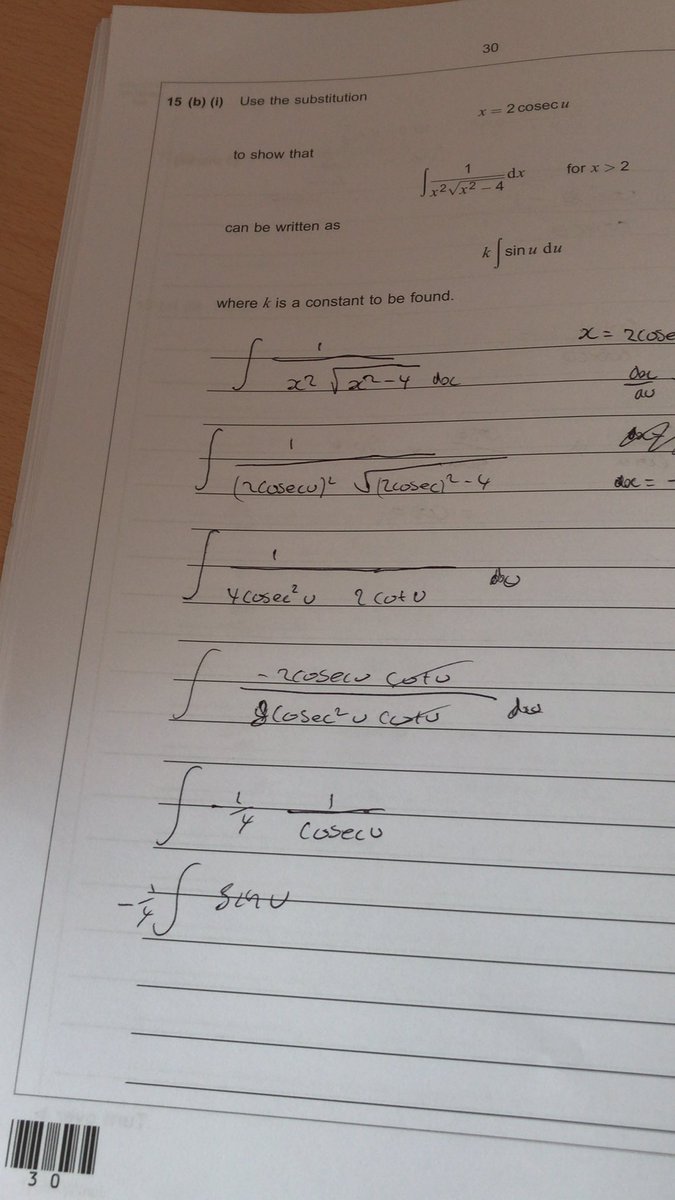 30
15 (b) (i) Use the substitution
x = 2 cosec u
to show that
∫ 1/(x²√(x² − 4)) dx for x > 2
can be written as
k ∫ sin u du
where k is a constant to be found.
∫ 1/(x² √(x²−4)) dx x = 2cose
dx/du
∫ 1/((2cosecu)² √((2cosec)²−4)) dx = -
∫ 1/(4cosec²u 2cotu) du
∫ (−2cosecu cotu)/(8cosec²u cotu) du
∫ −1/4 1/cosecu
−1/4 ∫ sinu
30